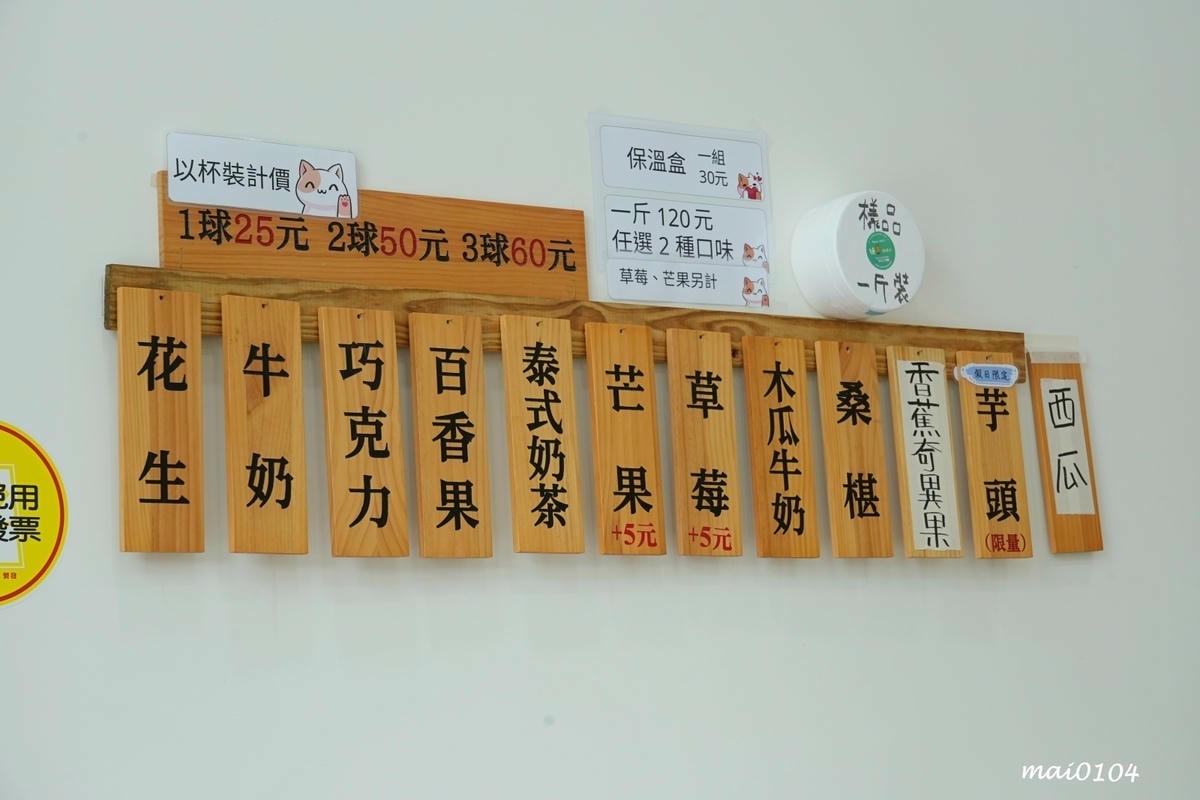 以杯裝計價
1球25元 2球50元 3球60元
保溫盒 一組 30元
一斤 120 元
任選 2 種口味
草莓、芒果另計
樣品
一斤裝
花生
牛奶
巧克力
百香果
泰式奶茶
芒果
+5元
草莓
+5元
木瓜牛奶
桑椹
香蕉奇異果
假日限定
芋頭
(限量)
西瓜
用
發票
mai0104